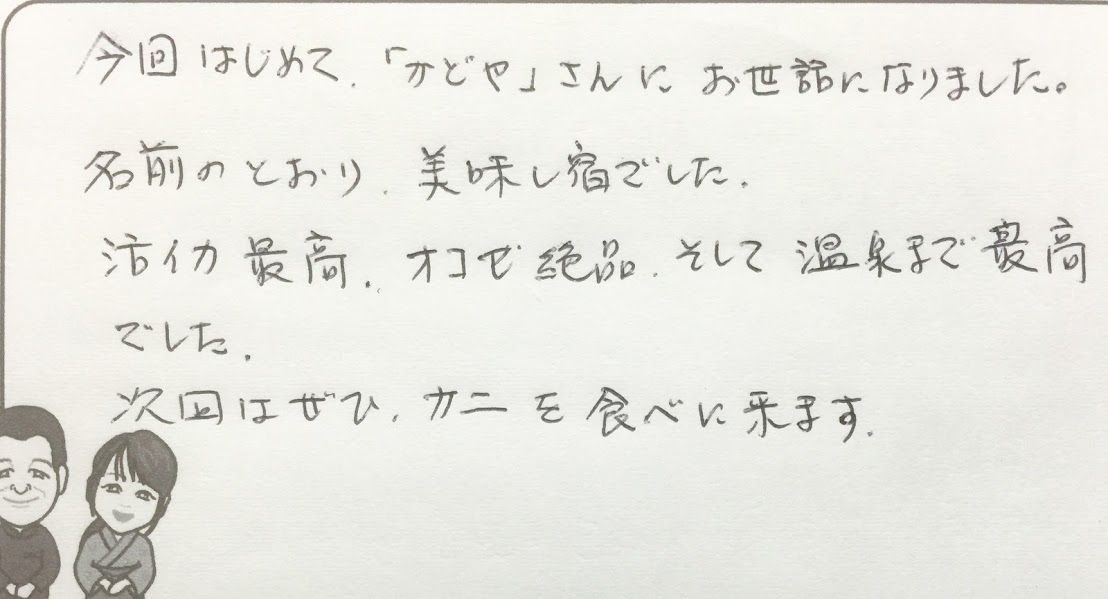 今回はじめて、「かどや」さんにお世話になりました。
名前のとおり、美味し宿でした。
活イカ最高、オコゼ絶品、そして温泉まで最高
でした。
次回はぜひ、カニを食べに来ます。